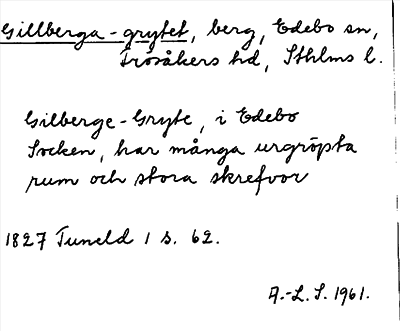 Gillberga-grytet, berg, Edebo sn,
Frösåkers hd, Sthlms l.
Gilberge-Gryte, i Edebo
Socken, har många urgröpta
rum och stora skrefvor
1827 Tuneld 1 s. 62.
A.-L. S. 1961.